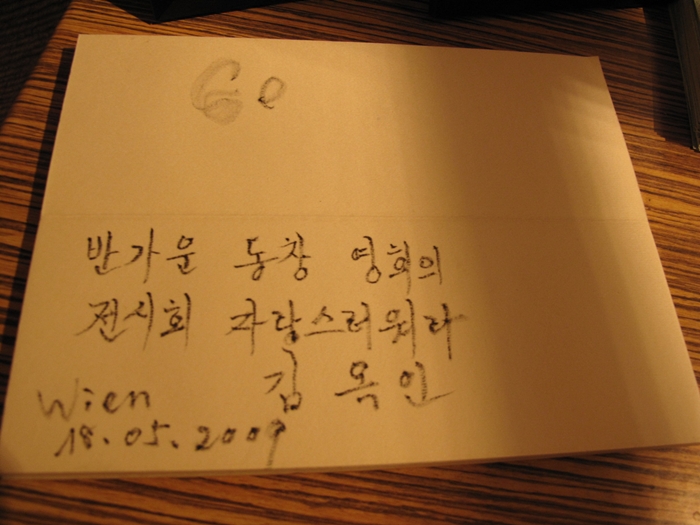 Ge
반가운 동창 영희의
전시회 자랑스러워라
김 옥 인
Wien
18.05.2009